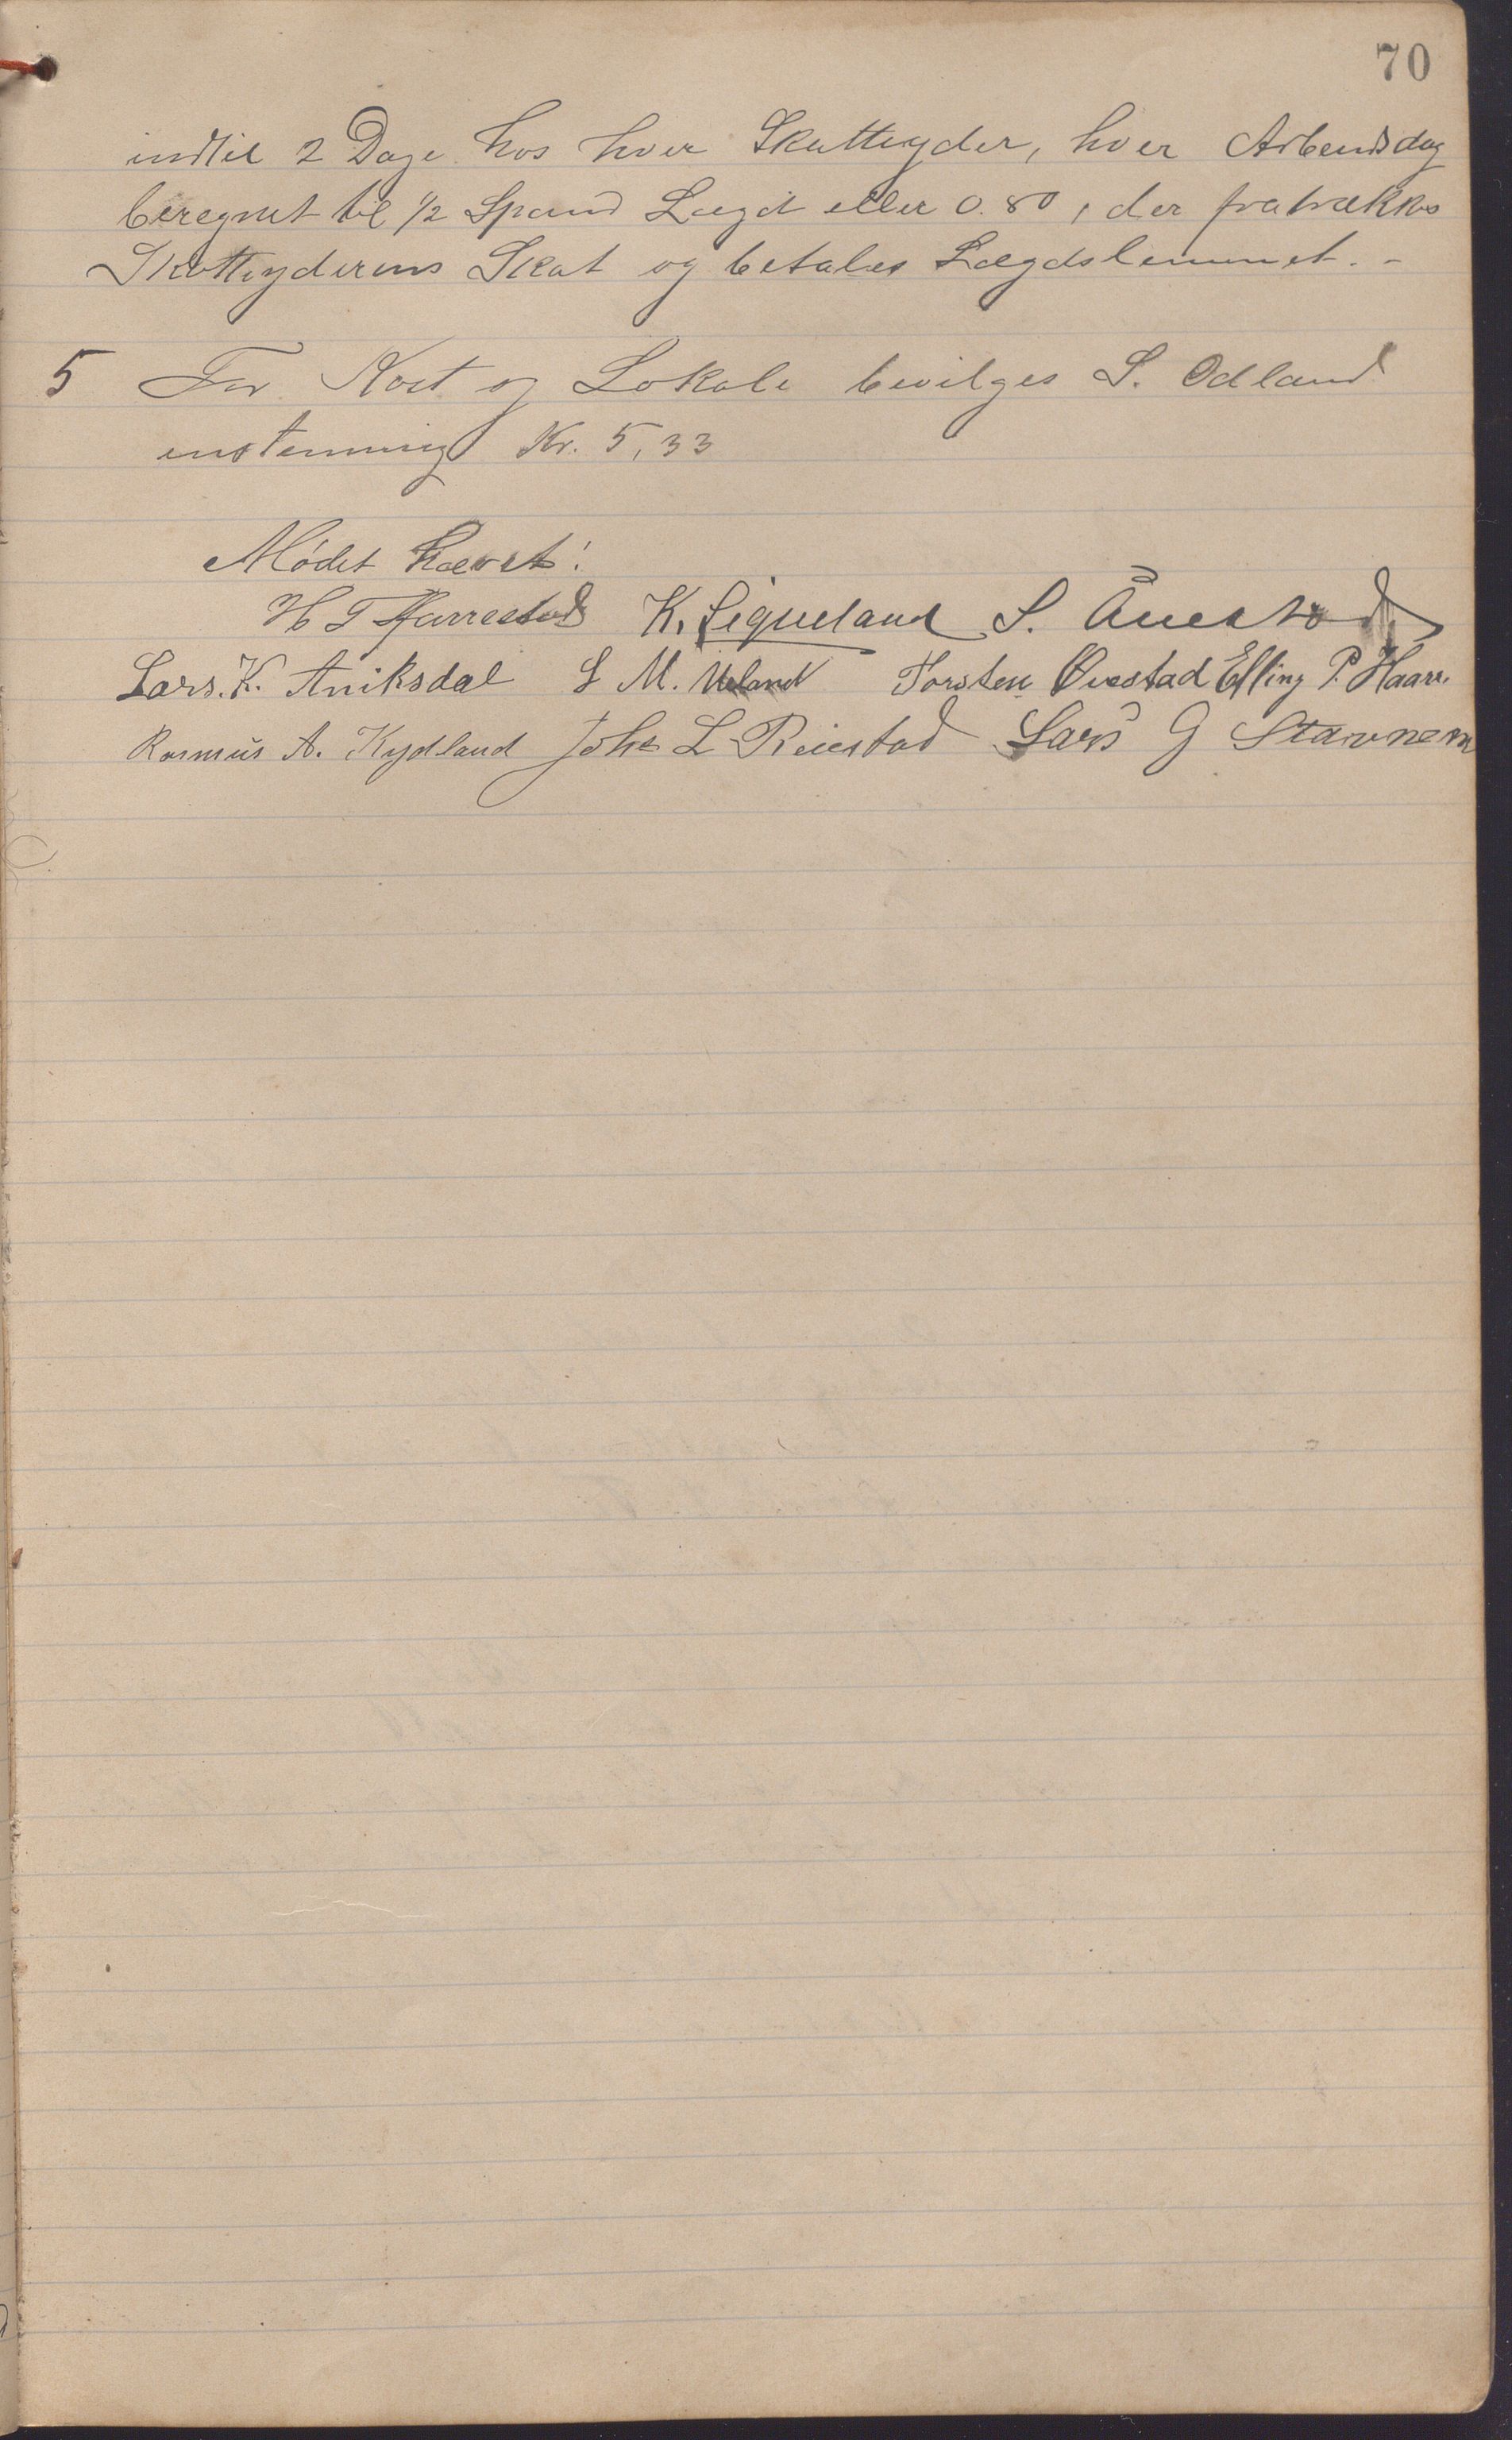 70
indtil 2 Dage hos hver Skatteyder, hver Arbeidsdag
beregnet til 1/2 Spand Lægd eller 0.80, der fratrækkes
Skatteyderens Skat og betales Lægdslemmet. -
5 For Kost og Lokale bevilges S. Odland
enstemmig Kr. 5,33
Mødet hævet!
H T Harrestad K. Sigveland S. Auestad
Lars. K. Aniksdal L M. Ueland Torsten Øvestad Elling P. Haar.
Rasmus A. Kydland Johs L Reiestad Lars G Stavnem